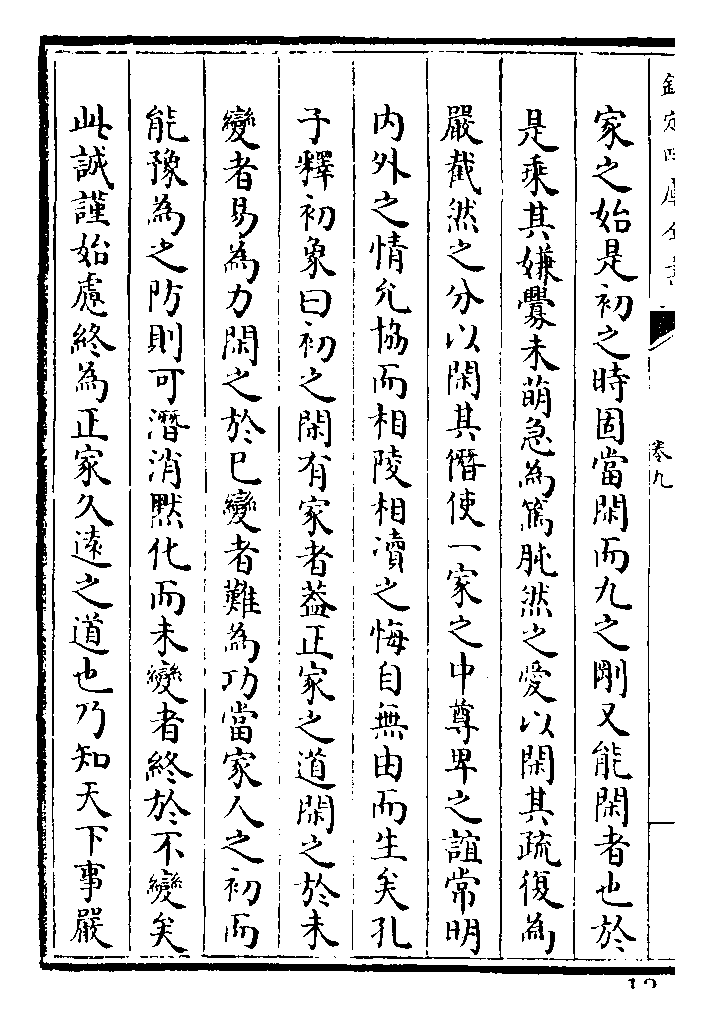 欽定四庫全書
卷九
家之始是初之時固當閑而九之剛又能閑者也於
是乗其嫌釁未萌急為篤肫然之愛以閑其疏復為
嚴截然之分以閑其僭使一家之中尊卑之誼常明
内外之情允協而相陵相凟之悔自無由而生矣孔
子釋初象曰初之閑有家者葢正家之道閑之於未
變者易為力閑之於已變者難為功當家人之初而
能豫為之防則可潛消黙化而未變者終於不變矣
此誠謹始慮終為正家久遠之道也乃知天下事嚴